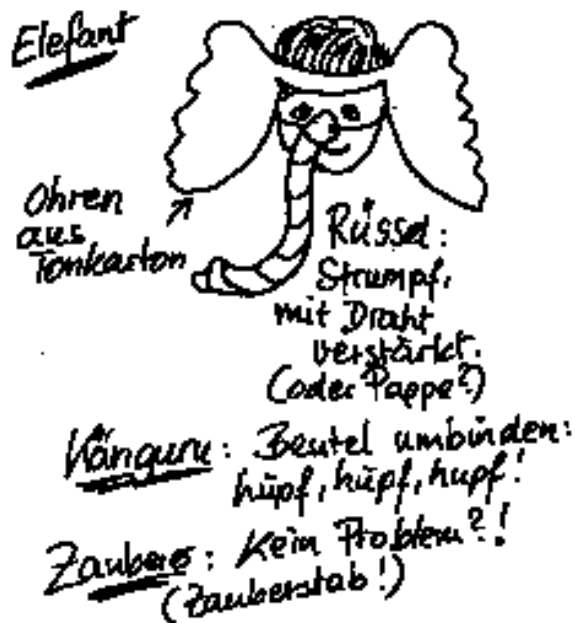 Elefant
Ohren
aus
Tonkarton
Rüssel:
Strumpf,
mit Draht
verstärkt.
(oder Pappe?)
Känguru: Beutel umbinden:
hüpf, hüpf, hupf!
Zauberer: Kein Problem?!
(Zauberstab!)